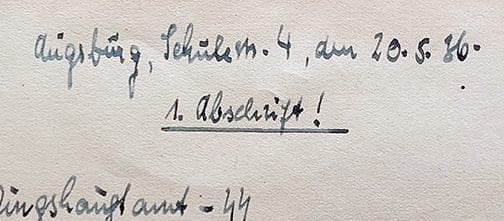 Augsburg, Schulestr. 4, den 20. 5. 36.
1. Abschrift!
ingshauptamt - 44